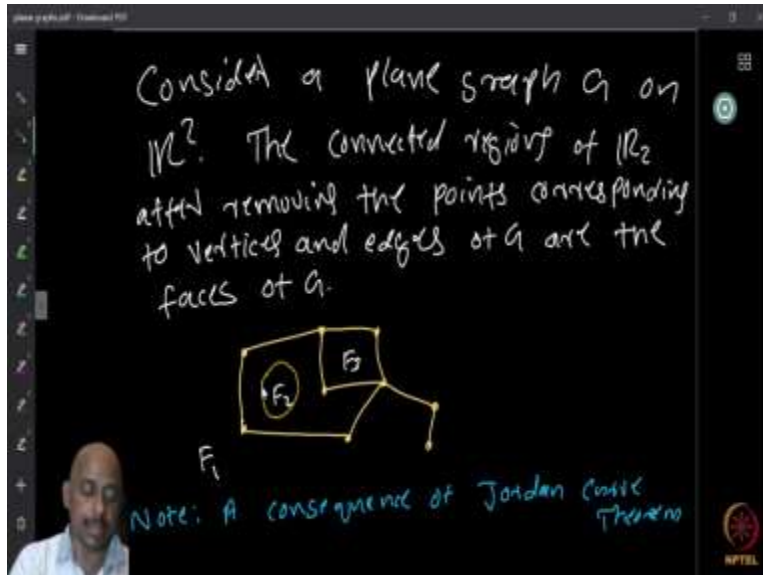 plane graphs.pdf - Download PDF
Consider a plane graph G on
IR². The connected regions of IR₂
after removing the points corresponding
to vertices and edges of G are the
faces of G.
F₃
F₂
F₁
Note: A consequence of Jordan Curve
Theorem
NPTEL